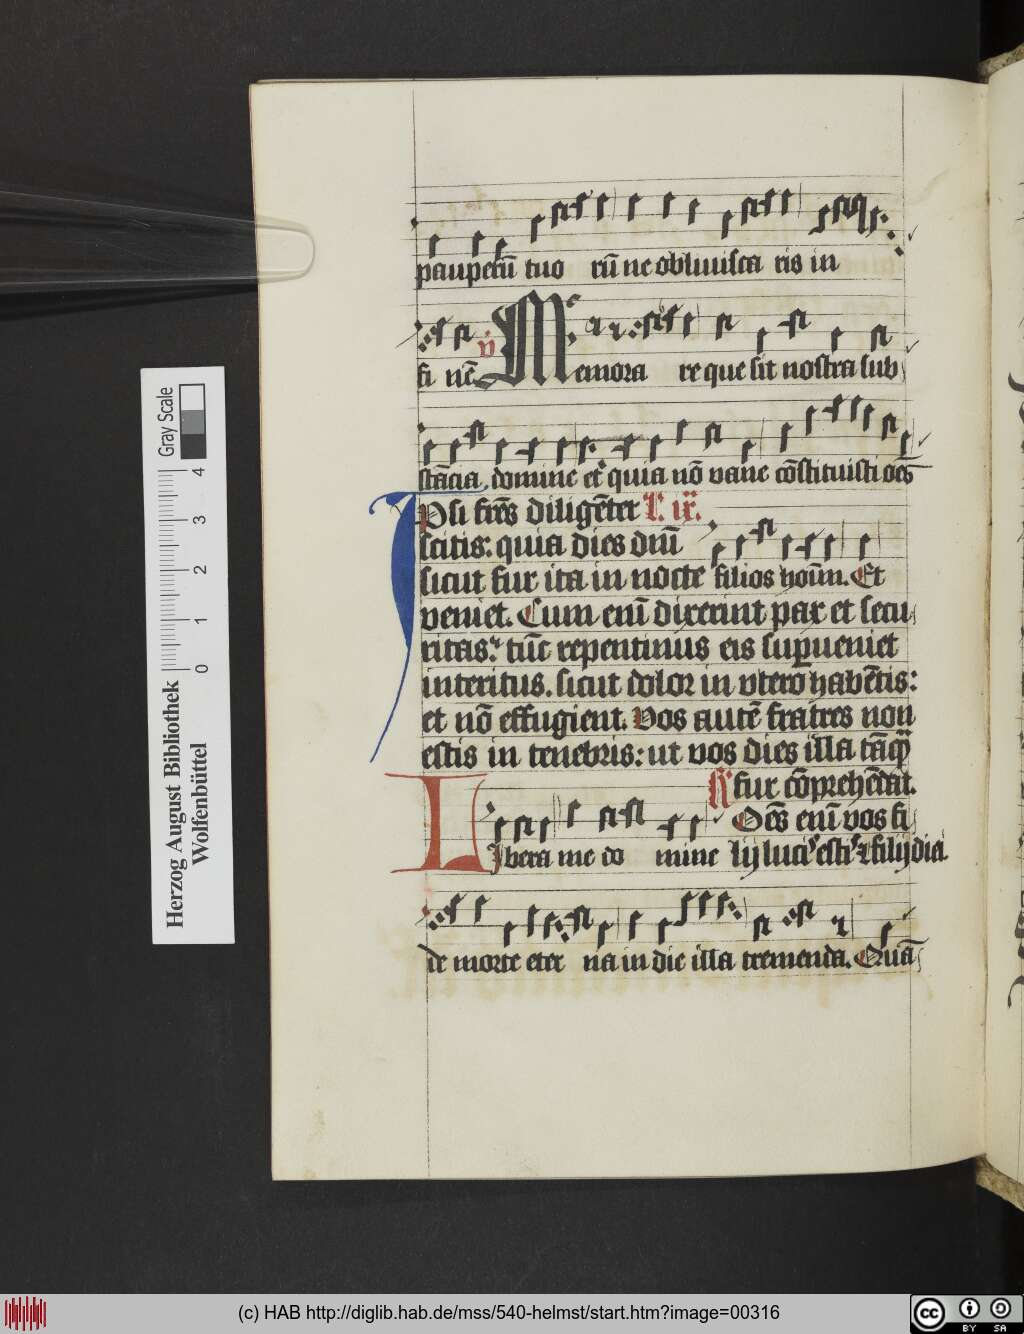 pauperū tuo rū ne obliuisca ris in
fi nē v Memora re que sit nostra sub
stācia domine et quia nō vane cōstituisti oēs
Ipsi frēs diligēter L. ix.
scitis: quia dies dnī
sicut fur ita in nocte filios hoīm. Et
veniet. Cum enī dixerint pax et secu
ritas: tūc repentinus eis supueniet
interitus. sicut dolor in vtero habētis:
et nō effugient. Vos autē fratres non
estis in tenebris: ut vos dies illa tāq
fur cōprehēdat.
Oēs enī vos fi
Libera me do mine lij luci estis filij diei
de morte eter na in die illa tremenda. Quā
Gray Scale
0 1 2 3 4
Herzog August Bibliothek
Wolfenbüttel
(c) HAB http://diglib.hab.de/mss/540-helmst/start.htm?image=00316
cc BY SA